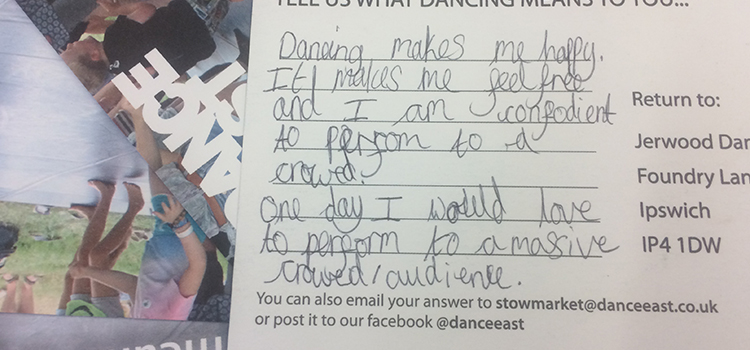 TELL US WHAT DANCING MEANS TO YOU...
Dancing makes me happy.
It makes me feel free
and I am confodient
to perform to a
crowed.
One day I would love
to perform to a massive
crowed/audience.
Return to:
Jerwood Dan
Foundry Lan
Ipswich
IP4 1DW
You can also email your answer to stowmarket@danceeast.co.uk
or post it to our facebook @danceeast